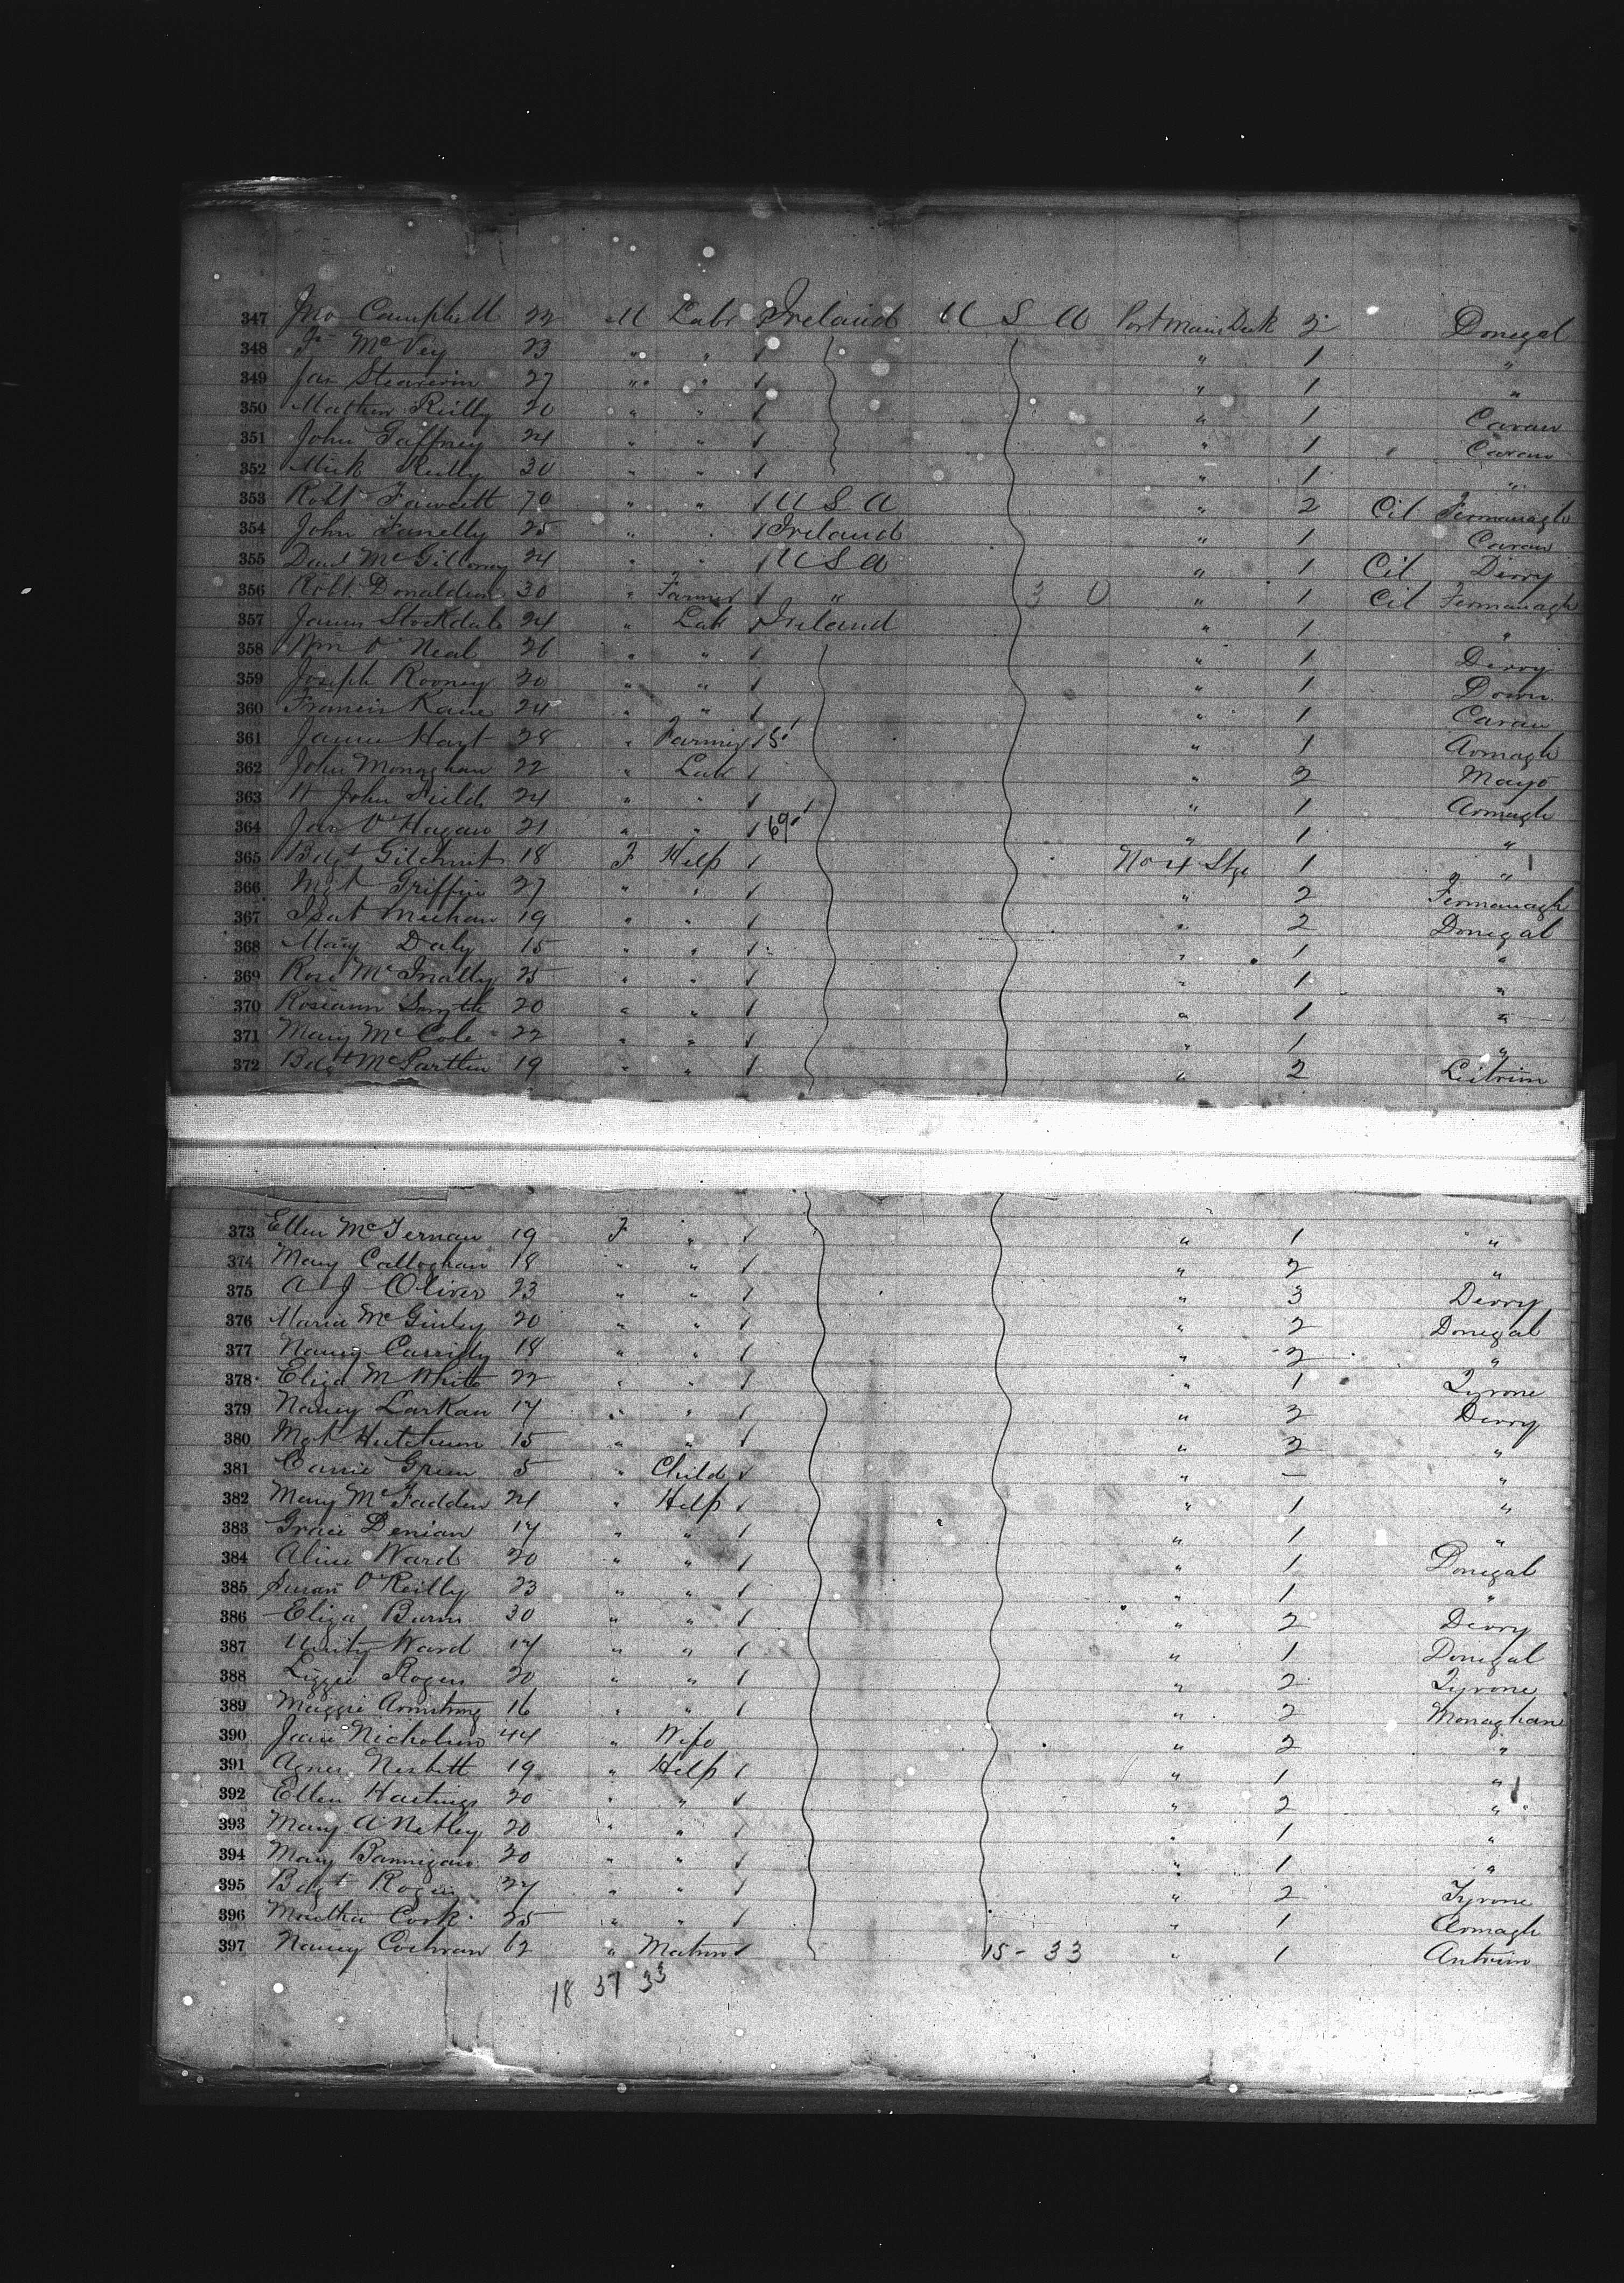 347 Jno Campbell 22 M Labr Ireland U S A Port Main Deck 2 Donegal
348 Jno McVey 23 " " / " 1 "
349 Jas 27 " " / " 1 "
350 Mathew Reilly 20 " " / " 1 Cavan
351 John Gaffney 24 " " / " 1 Cavan
352 Mick Reilly 30 " " / " 1 "
353 Robt Fawcett 70 " " / U S A " 2 Cit Fermanagh
354 John 25 " " / Ireland " 1 Cavan
355 Danl 24 " " / U S A " 1 Cit Derry
356 Robt Donaldson 30 " Farmer / " 3 0 " 1 Cit Fermanagh
357 James Stockdale 24 " Lab / Ireland " 1 "
358 Wm O'Neal 26 " " / " 1 Derry
359 Joseph Rooney 20 " " / " 1 Down
360 Francis Kane 24 " " / " 1 Cavan
361 Hart 28 " Farmer / 5 " 1 Armagh
362 John Monaghan 22 " Lab / " 2 Mayo
363 John Field 24 " " / " 1 Armagh
364 Jas O'Hagan 21 " " / 69 " 1 "
365 Bdgt Gilchrist 18 F Help / No 4 Stge 1 "
366 Mgt Griffin 27 " " / " 2 Fermanagh
367 Isab Meehan 19 " " / " 2 Donegal
368 Mary Daly 15 " " / " 1 "
369 Rose McInally 25 " " / " 1 "
370 Roseann Smyth 20 " " / " 1 "
371 Mary McCole 22 " " / " 1 "
372 Bdgt McPartlin 19 " " / " 2 Leitrim
373 Ellen McTernan 19 F " / " 1 "
374 Mary Calloghan 18 " " / " 2 "
375 A J Oliver 23 " " / " 3 Derry
376 Maria McGinley 20 " " / " 2 Donegal
377 Nancy Cassidy 18 " " / " 2 "
378 Eliza M White 22 " " / " 1 Tyrone
379 Nancy Larkan 17 " " / " 2 Derry
380 Mgt 15 " " / " 2 "
381 Carrie Green 5 " Child / " – "
382 Mary McFadden 24 " Help / " 1 "
383 Gracie 17 " " / " 1 "
384 Alice Ward 20 " " / " 1 Donegal
385 Susan O'Reilly 23 " " / " 1 "
386 Eliza Burns 30 " " / " 2 Derry
387 Unity Ward 17 " " / " 1 Donegal
388 Lizzie Rogers 20 " " / " 2 Tyrone
389 Maggie Armstrong 16 " " / " 2 Monaghan
390 Jane Nicholson 44 " Wife " 2 "
391 Agnes Nesbitt 19 " Help / " 1 "
392 Ellen Hastings 20 " " / " 2 "
393 Mary A 20 " " / " 1 "
394 Mary Bannigan 20 " " / " 1 "
395 Bdgt 27 " " / " 2 Tyrone
396 Martha Cook 25 " " / " 1 Armagh
397 Nancy Cochran 62 " Matron / 15 - 33 " 1 Antrim
18 37 33